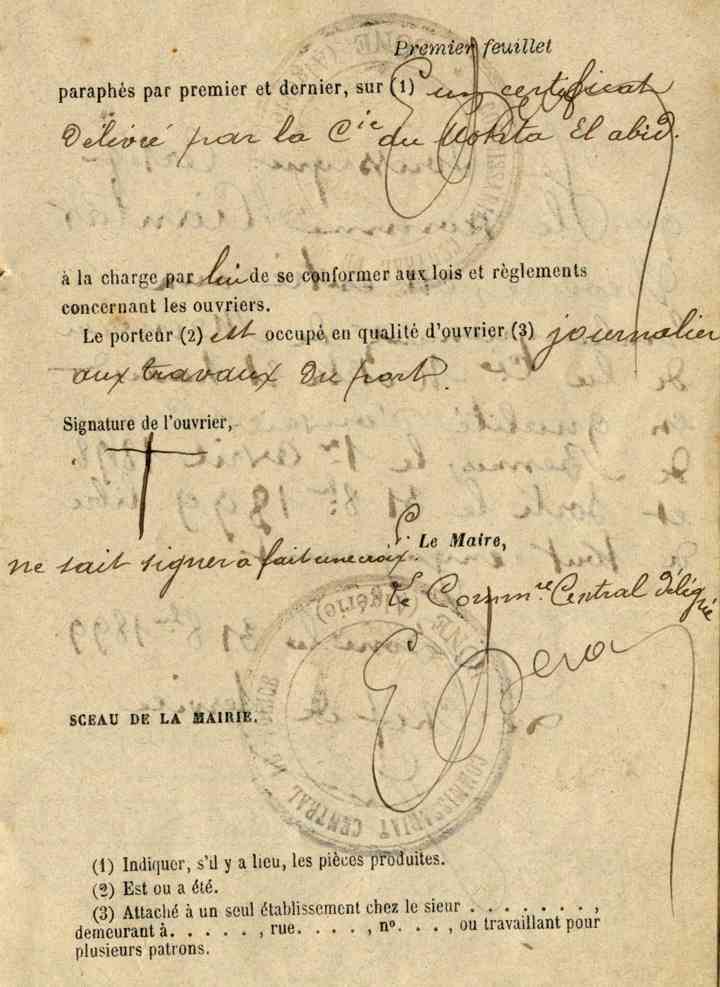 Premier feuillet
paraphés par premier et dernier, sur (1) un certificat
délivré par la Cie du Mokta El abid.
à la charge par lui de se conformer aux lois et règlements
concernant les ouvriers.
Le porteur (2) est occupé en qualité d'ouvrier (3) journalier
aux travaux du port.
Signature de l'ouvrier,
ne sait signer a fait une croix.
Le Maire,
Le Commre Central délégué
SCEAU DE LA MAIRIE.
COMMISSARIAT CENTRAL
(1) Indiquer, s'il y a lieu, les pièces produites.
(2) Est ou a été.
(3) Attaché à un seul établissement chez le sieur . . . . . . . . ,
demeurant à. . . . . , rue. . . . . , nº. . . . , ou travaillant pour
plusieurs patrons.